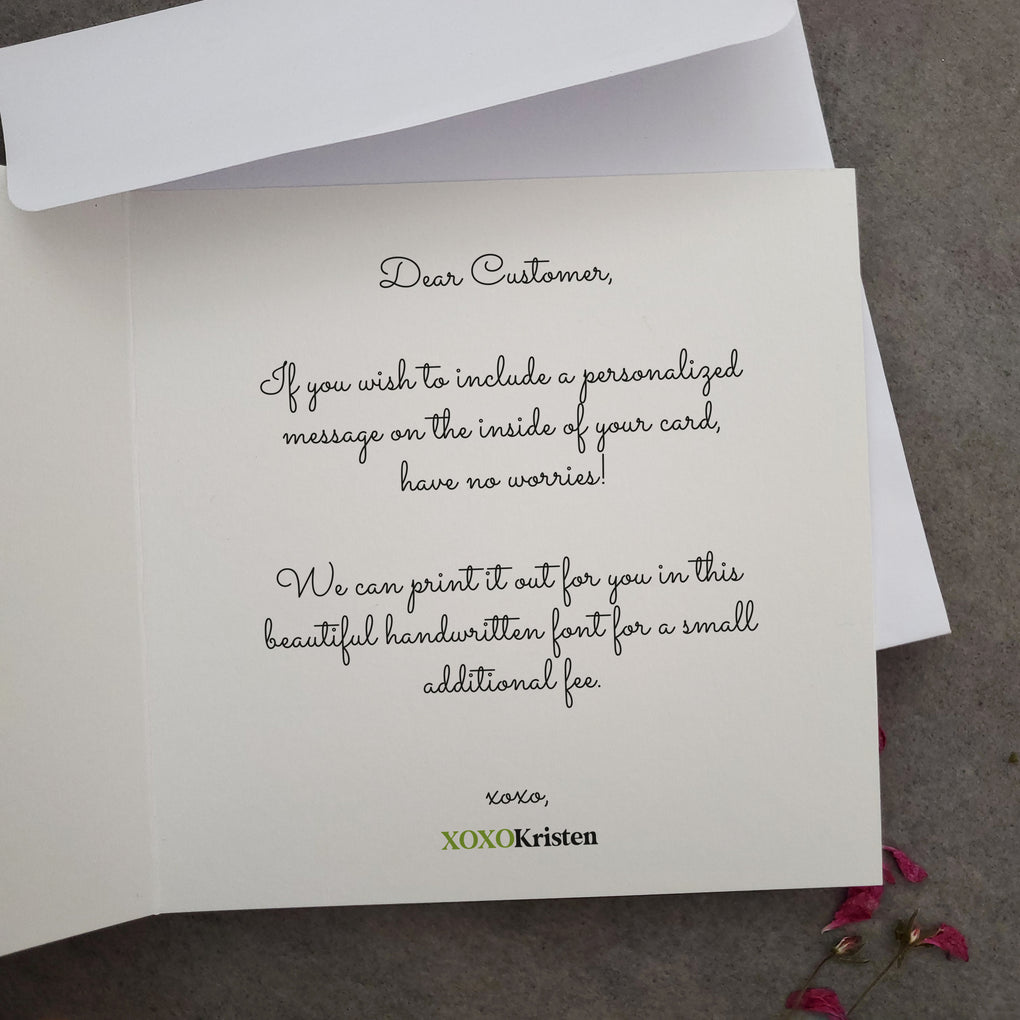 Dear Customer,
If you wish to include a personalized
message on the inside of your card,
have no worries!
We can print it out for you in this
beautiful handwritten font for a small
additional fee.
xoxo,
XOXOKristen